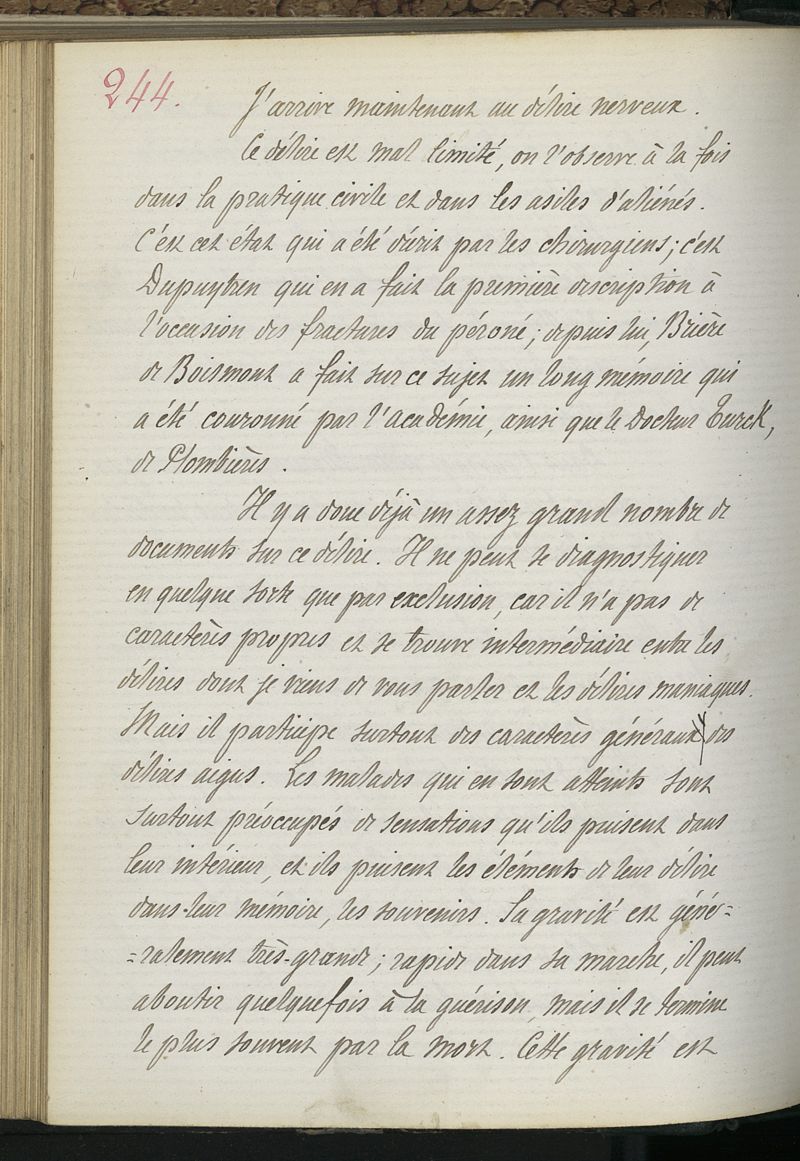 244.
J'arrive maintenant au délire nerveux.
Ce délire est mal limité, on l'observe à la fois
dans la pratique civile et dans les asiles d'aliénés.
C'est cet état qui a été décrit par les chirurgiens; c'est
Dupuytren qui en a fait la première description à
l'occasion des fractures du péroné; depuis lui, Brière
de Boismont a fait sur ce sujet un long mémoire qui
a été couronné par l'académie, ainsi que le Docteur Turck,
de Plombières.
Il y a donc déjà un assez grand nombre de
documents sur ce délire. Il ne peut se diagnostiquer
en quelque sorte que par exclusion, car il n'a pas de
caractères propres et se trouve intermédiaire entre les
délires dont je viens de vous parler et les délires maniaques.
Mais il participe surtout des caractères généraux des
délires aigus. Les malades qui en sont atteints sont
surtout préoccupés de sensations qu'ils puisent dans
leur intérieur, et ils puisent les éléments de leur délire
dans leur mémoire, les souvenirs. Sa gravité est géné=
=ralement très-grande; rapide dans sa marche, il peut
aboutir quelquefois à la guérison, mais il se termine
le plus souvent par la mort. Cette gravité est